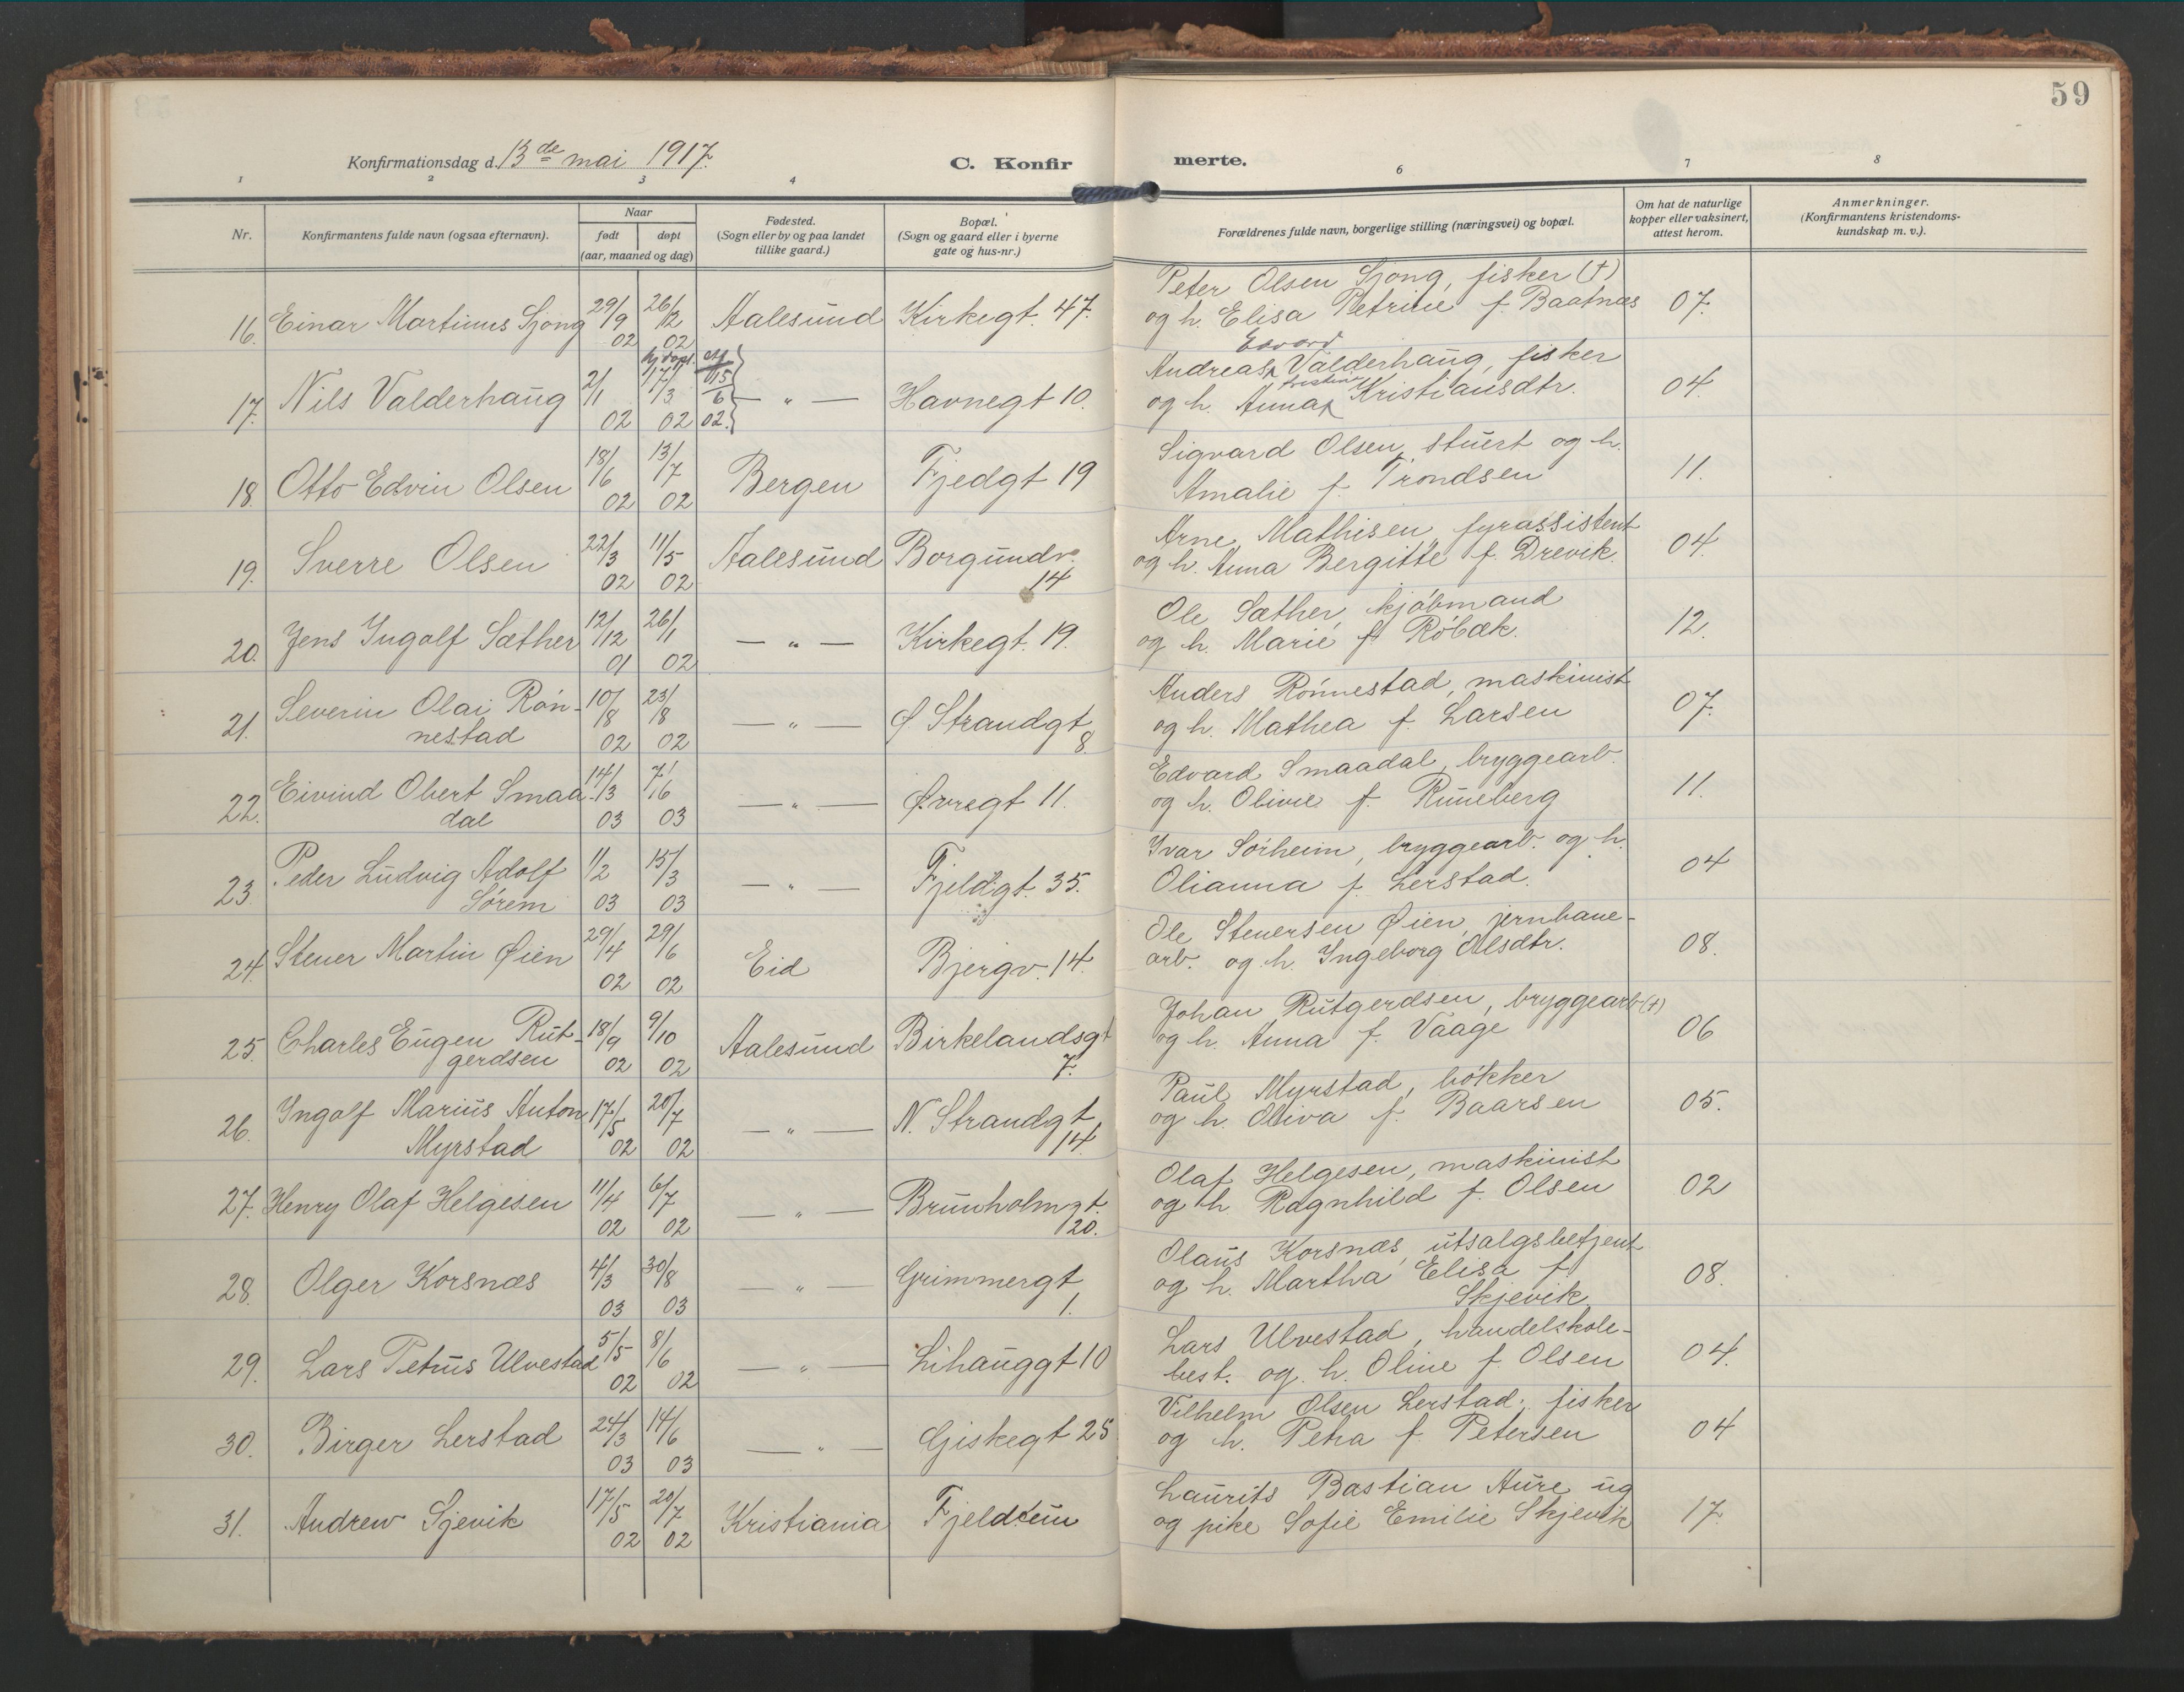 59
Konfirmationsdag d. 13de mai 1917.
C. Konfirmerte.
1 2 3 4 6 7 8
Nr.
Konfirmantens fulde navn (ogsaa efternavn).
Naar
født døpt
(aar, maaned og dag)
Fødested.
(Sogn eller by og paa landet
tillike gaard.)
Bopæl.
(Sogn og gaard eller i byerne
gate og hus-nr.)
Forældrenes fulde navn, borgerlige stilling (næringsvei) og bopæl.
Om hat de naturlige
kopper eller vaksinert,
attest herom.
Anmerkninger.
(Konfirmantens kristendoms-
kundskap m. v.).
16. Einar Martinus Sjong 29/9 02 26/12 02 Aalesund Kirkegt. 47.
Peter Olsen Sjong, fisker (†)
og h. Elisa Petrine f. Baatnæs 07.
17. Nils Valderhaug 2/1 02 hj.døpt. 17/3 02 15/6 02. — " — Havnegt 10.
Andreas Edvard Valderhaug, fisker
og h. Anna Kristine Kristiansdtr. 04.
18. Otto Edvin Olsen 18/6 02 13/7 02 Bergen Fjedgt 19
Sigvard Olsen, stuert og h.
Amalie f. Trondsen 11.
19. Sverre Olsen 22/3 02 11/5 02 Aalesund Borgundv.
14
Arne Mathisen, fyrassistent
og h. Anna Bergitte f. Drevik. 04.
20. Jens Ingolf Sæther 12/12 01 26/1 02 — " — Kirkegt. 19.
Ole Sæther, kjøbmand
og h. Marie f. Röbæk. 12.
21. Severin Olai Røn- 10/8 02 23/8 02 — " — Ø Strandgt
nestad 8.
Anders Rønnestad, maskinist
og h. Mathea f. Larsen 07.
22. Eivind Obert Smaa- 14/3 03 7/6 03 — " — Øvregt 11.
dal
Edvard Smaadal, bryggearb.
og h. Olivie f. Runeberg 11.
23. Peder Ludvig Adolf 1/2 03 15/3 03 — " — Fjeldgt. 35.
Sørem
Ivar Sørheim, bryggearb. og h.
Olianna f. Lerstad. 04
24. Stener Martin Øien 29/4 02 29/6 02 Eid Bjergv. 14.
Ole Stenersen Øien, jernbane-
arb. og h. Ingeborg Olsdtr. 08.
25. Charles Eugen Rut- 18/9 02 9/10 02 Aalesund Birkelandsgt
gerdsen 7.
Johan Rutgerdsen, bryggearb (†)
og h. Anna f. Vaage 06
26. Ingolf Marius Anton 17/5 02 20/7 02 — " — N. Strandgt
Myrstad 14.
Paul Myrstad, bøkker
og h. Oliva f. Baarsen 05.
27. Henry Olaf Helgesen 11/4 02 6/7 02 — " — Brunholmgt.
20.
Olaf Helgesen, maskinist
og h. Ragnhild f. Olsen 02
28. Olger Korsnæs 4/3 03 30/8 03 — " — Grimmergt
1.
Olaus Korsnæs, utsalgsbetjent
og h. Martha Elisa f.
Skjevik 08.
29. Lars Petrus Ulvestad 5/5 02 8/6 02 — " — Lihauggt 10
Lars Ulvestad, handelskole-
best. og h. Oline f. Olsen 04.
30. Birger Lerstad 24/3 03 14/6 03 — " — Giskegt 25
Vilhelm Olsen Lerstad, fisker
og h. Petra f. Petersen 04
31. Andrew Sjevik 17/5 02 20/7 02 Kristiania Fjeldheim
Laurits Bastian Aure ug
og pike Sofie Emilie Skjevik 17.